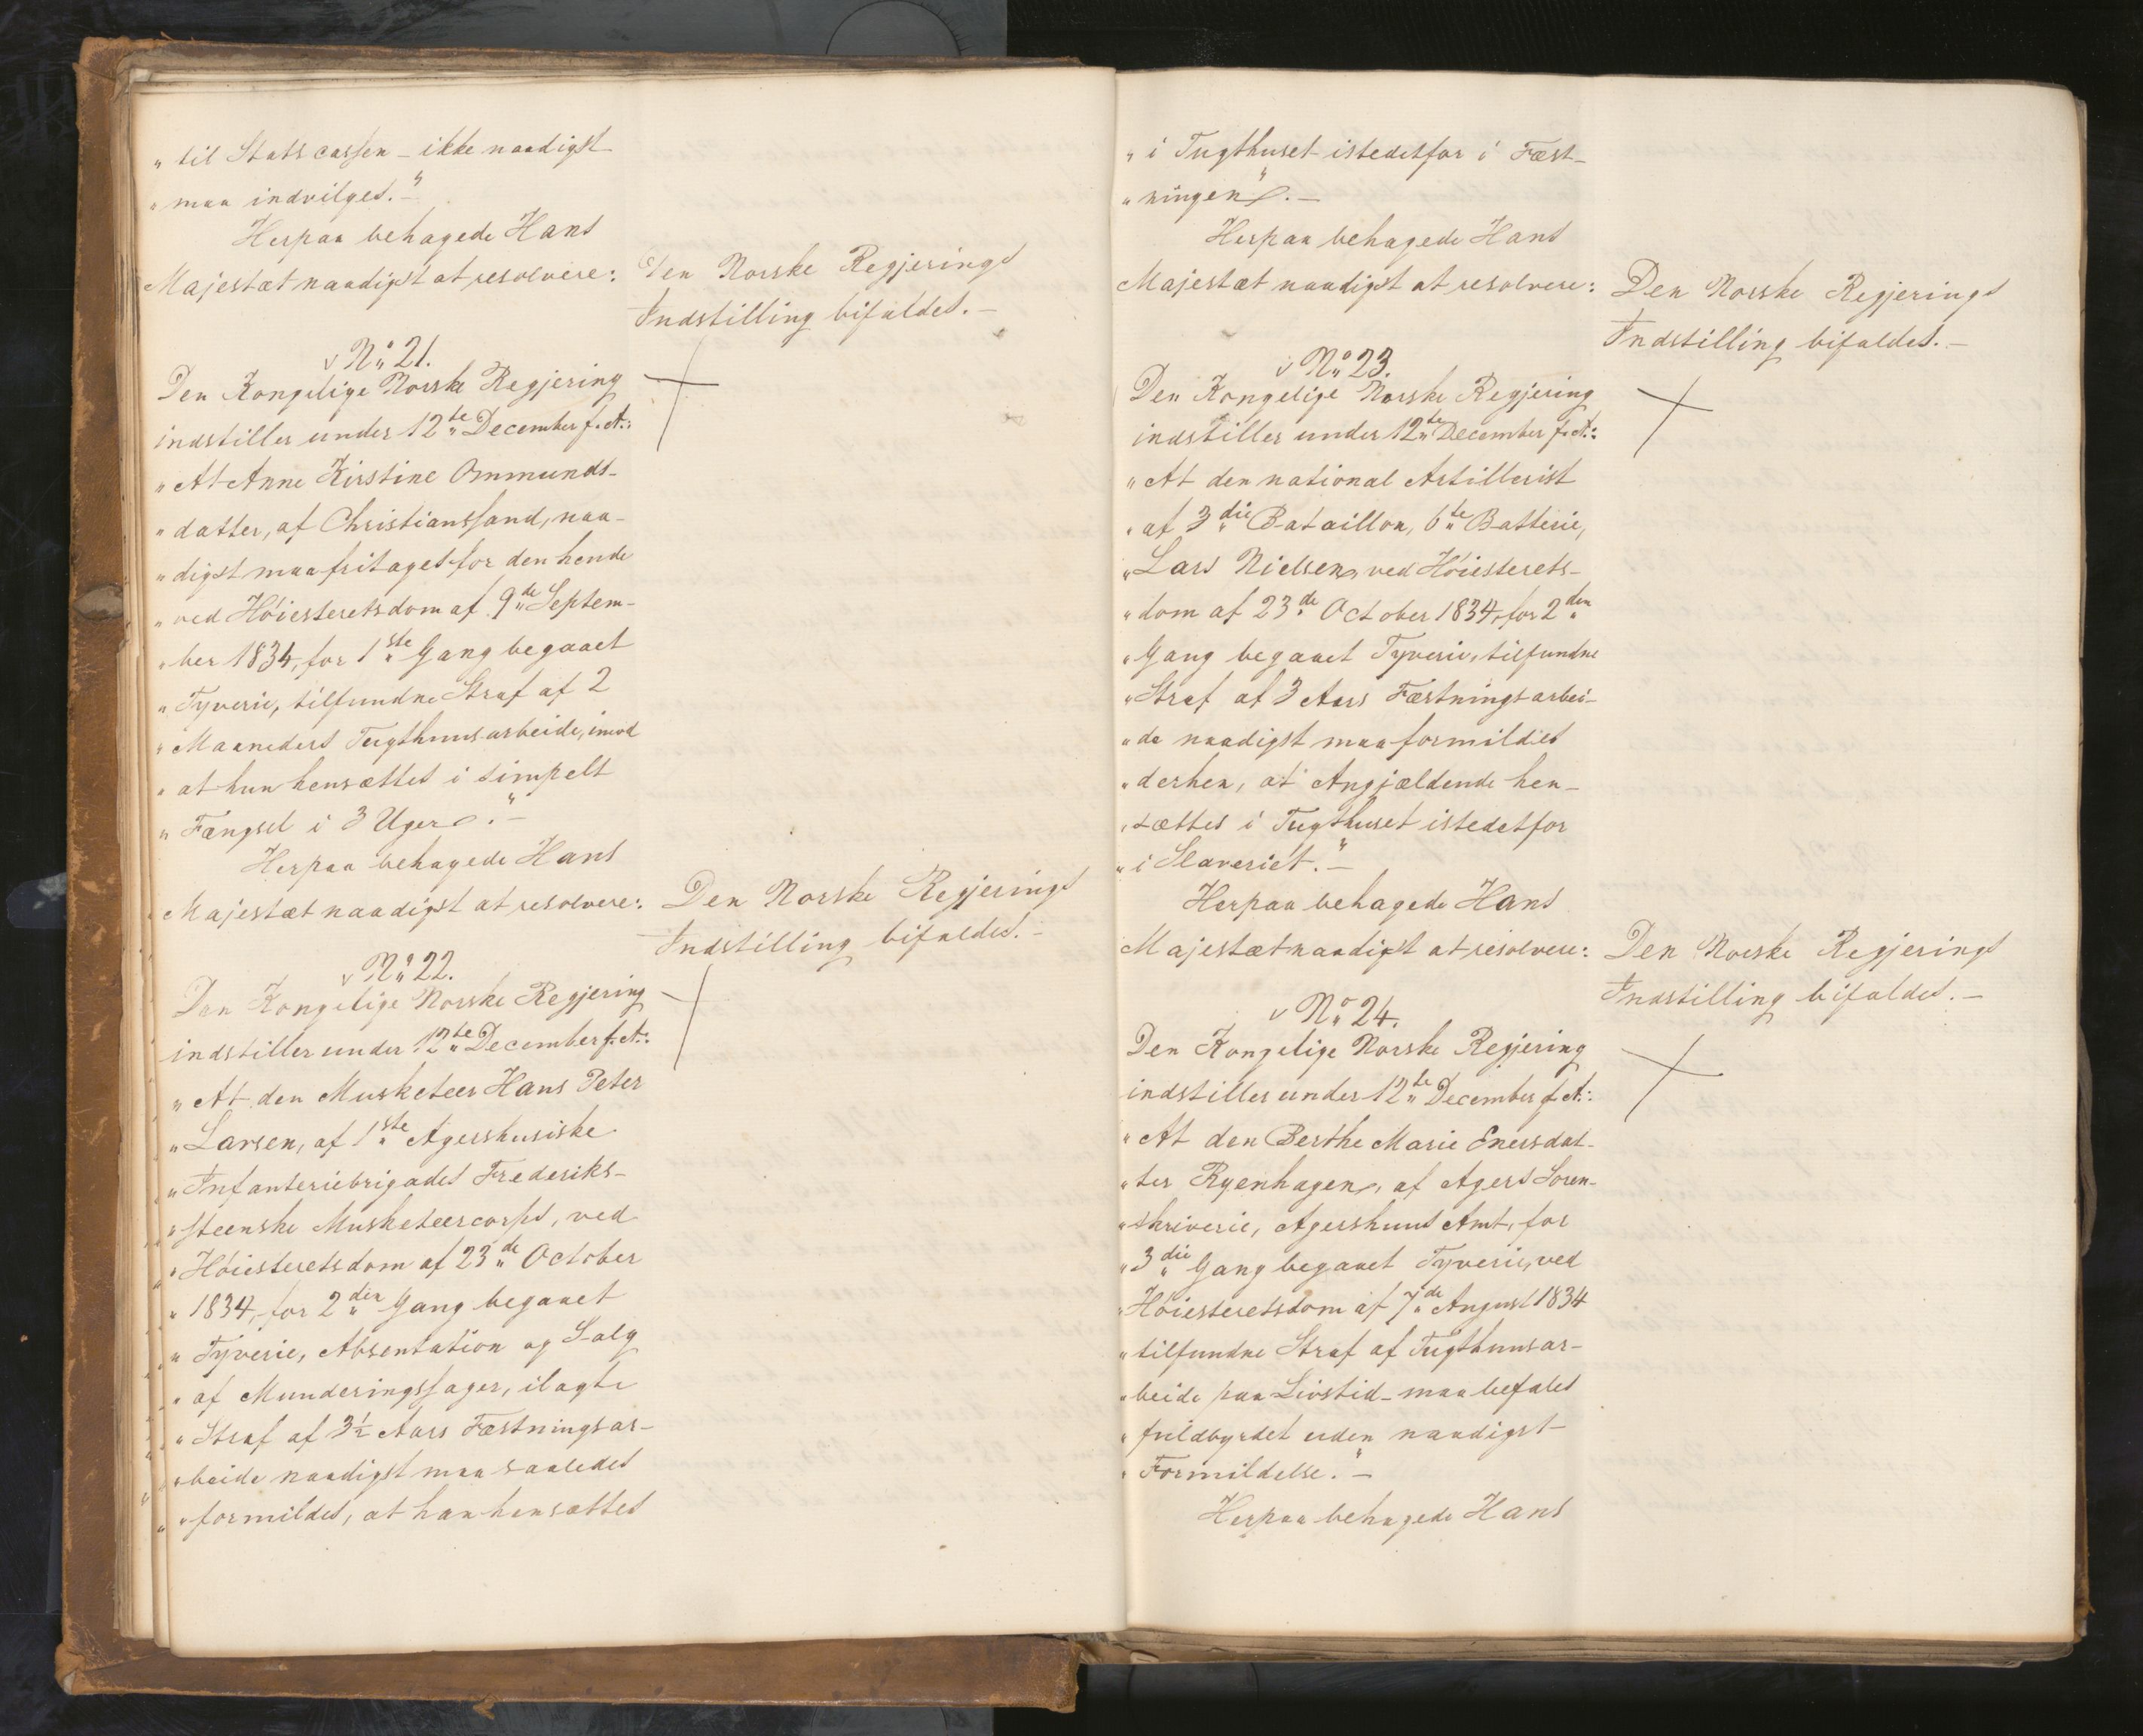 „ til Statscassen – ikke naadigst
„ maa indvilges.“ –
Herpaa behagede Hans
Majestæt naadigst at resolvere:
Den Norske Regjerings
Indstilling bifaldes. –
v No 21.
Den Kongelige Norske Regjering
indstiller under 12te December f. A.:
„ At Anne Kirstine Ommunds-
„ datter, af Christianssand, naa-
„ digst maa fritages for den hende
„ ved Höiesteretsdom af 9de Septem-
„ ber 1834, for 1ste Gang begaaet
„ Tyverie, tilfundne Straf af 2
„ Maaneders Tugthuusarbeide, imod
„ at hun hensættes i simpelt
„ Fængsel i 3 Uger“. –
Herpaa behagede Hans
Majestæt naadigst at resolvere:
Den Norske Regjerings
Indstilling bifaldes. –
v No 22.
Den Kongelige Norske Regjering
indstiller under 12te December f. A.:
„ At den Musketeer Hans Peter
„ Larsen, af 1ste Agershusiske
„ Infanteriebrigades Frederiks-
„ steenske Musketeercorps, ved
„ Höiesteretsdom af 23de October
„ 1834, for 2den Gang begaaet
„ Tyverie, Absentation og Salg
„ af Munderingssager, ilagte
„ Straf af 3½ Aars Fæstningsar-
„ beide naadigst maa saaledes
„ formildes, at han hensættes
„ i Tugthuset istedetfor i Fæst-
„ ningen“. –
Herpaa behagede Hans
Majestæt naadigst at resolvere:
Den Norske Regjerings
Indstilling bifaldes. –
v No 23.
Den Kongelige Norske Regjering
indstiller under 12te December f. A.:
„ At den national Artillerist
„ af 3die Bataillon, 6te Batterie,
„ Lars Nielsen, ved Höiesterets-
„ dom af 23de October 1834, for 2den
„ Gang begaaet Tyverie, tilfundne
„ Straf af 3 Aars Fæstningsarbei-
„ de naadigst maa formildes
„ derhen, at Angjældende hen-
„ sættes i Tugthuset istedetfor
„ i Slaveriet.“ –
Herpaa behagede Hans
Majestæt naadigst at resolvere:
Den Norske Regjerings
Indstilling bifaldes. –
v No 24.
Den Kongelige Norske Regjering
indstiller under 12te December f. A.:
„ At den Berthe Marie Enersdat-
„ ter Ryenhagen, af Agers Soren-
„ skriverie, Agershuus Amt, for
„ 3die Gang begaaet Tyverie, ved
„ Höiesteretsdom af 7de August 1834
„ tilfundne Straf af Tugthuusar-
„ beide paa Livstid – maa befales
„ fuldbyrdet uden naadigst
„ Formildelse.“ –
Herpaa behagede Hans